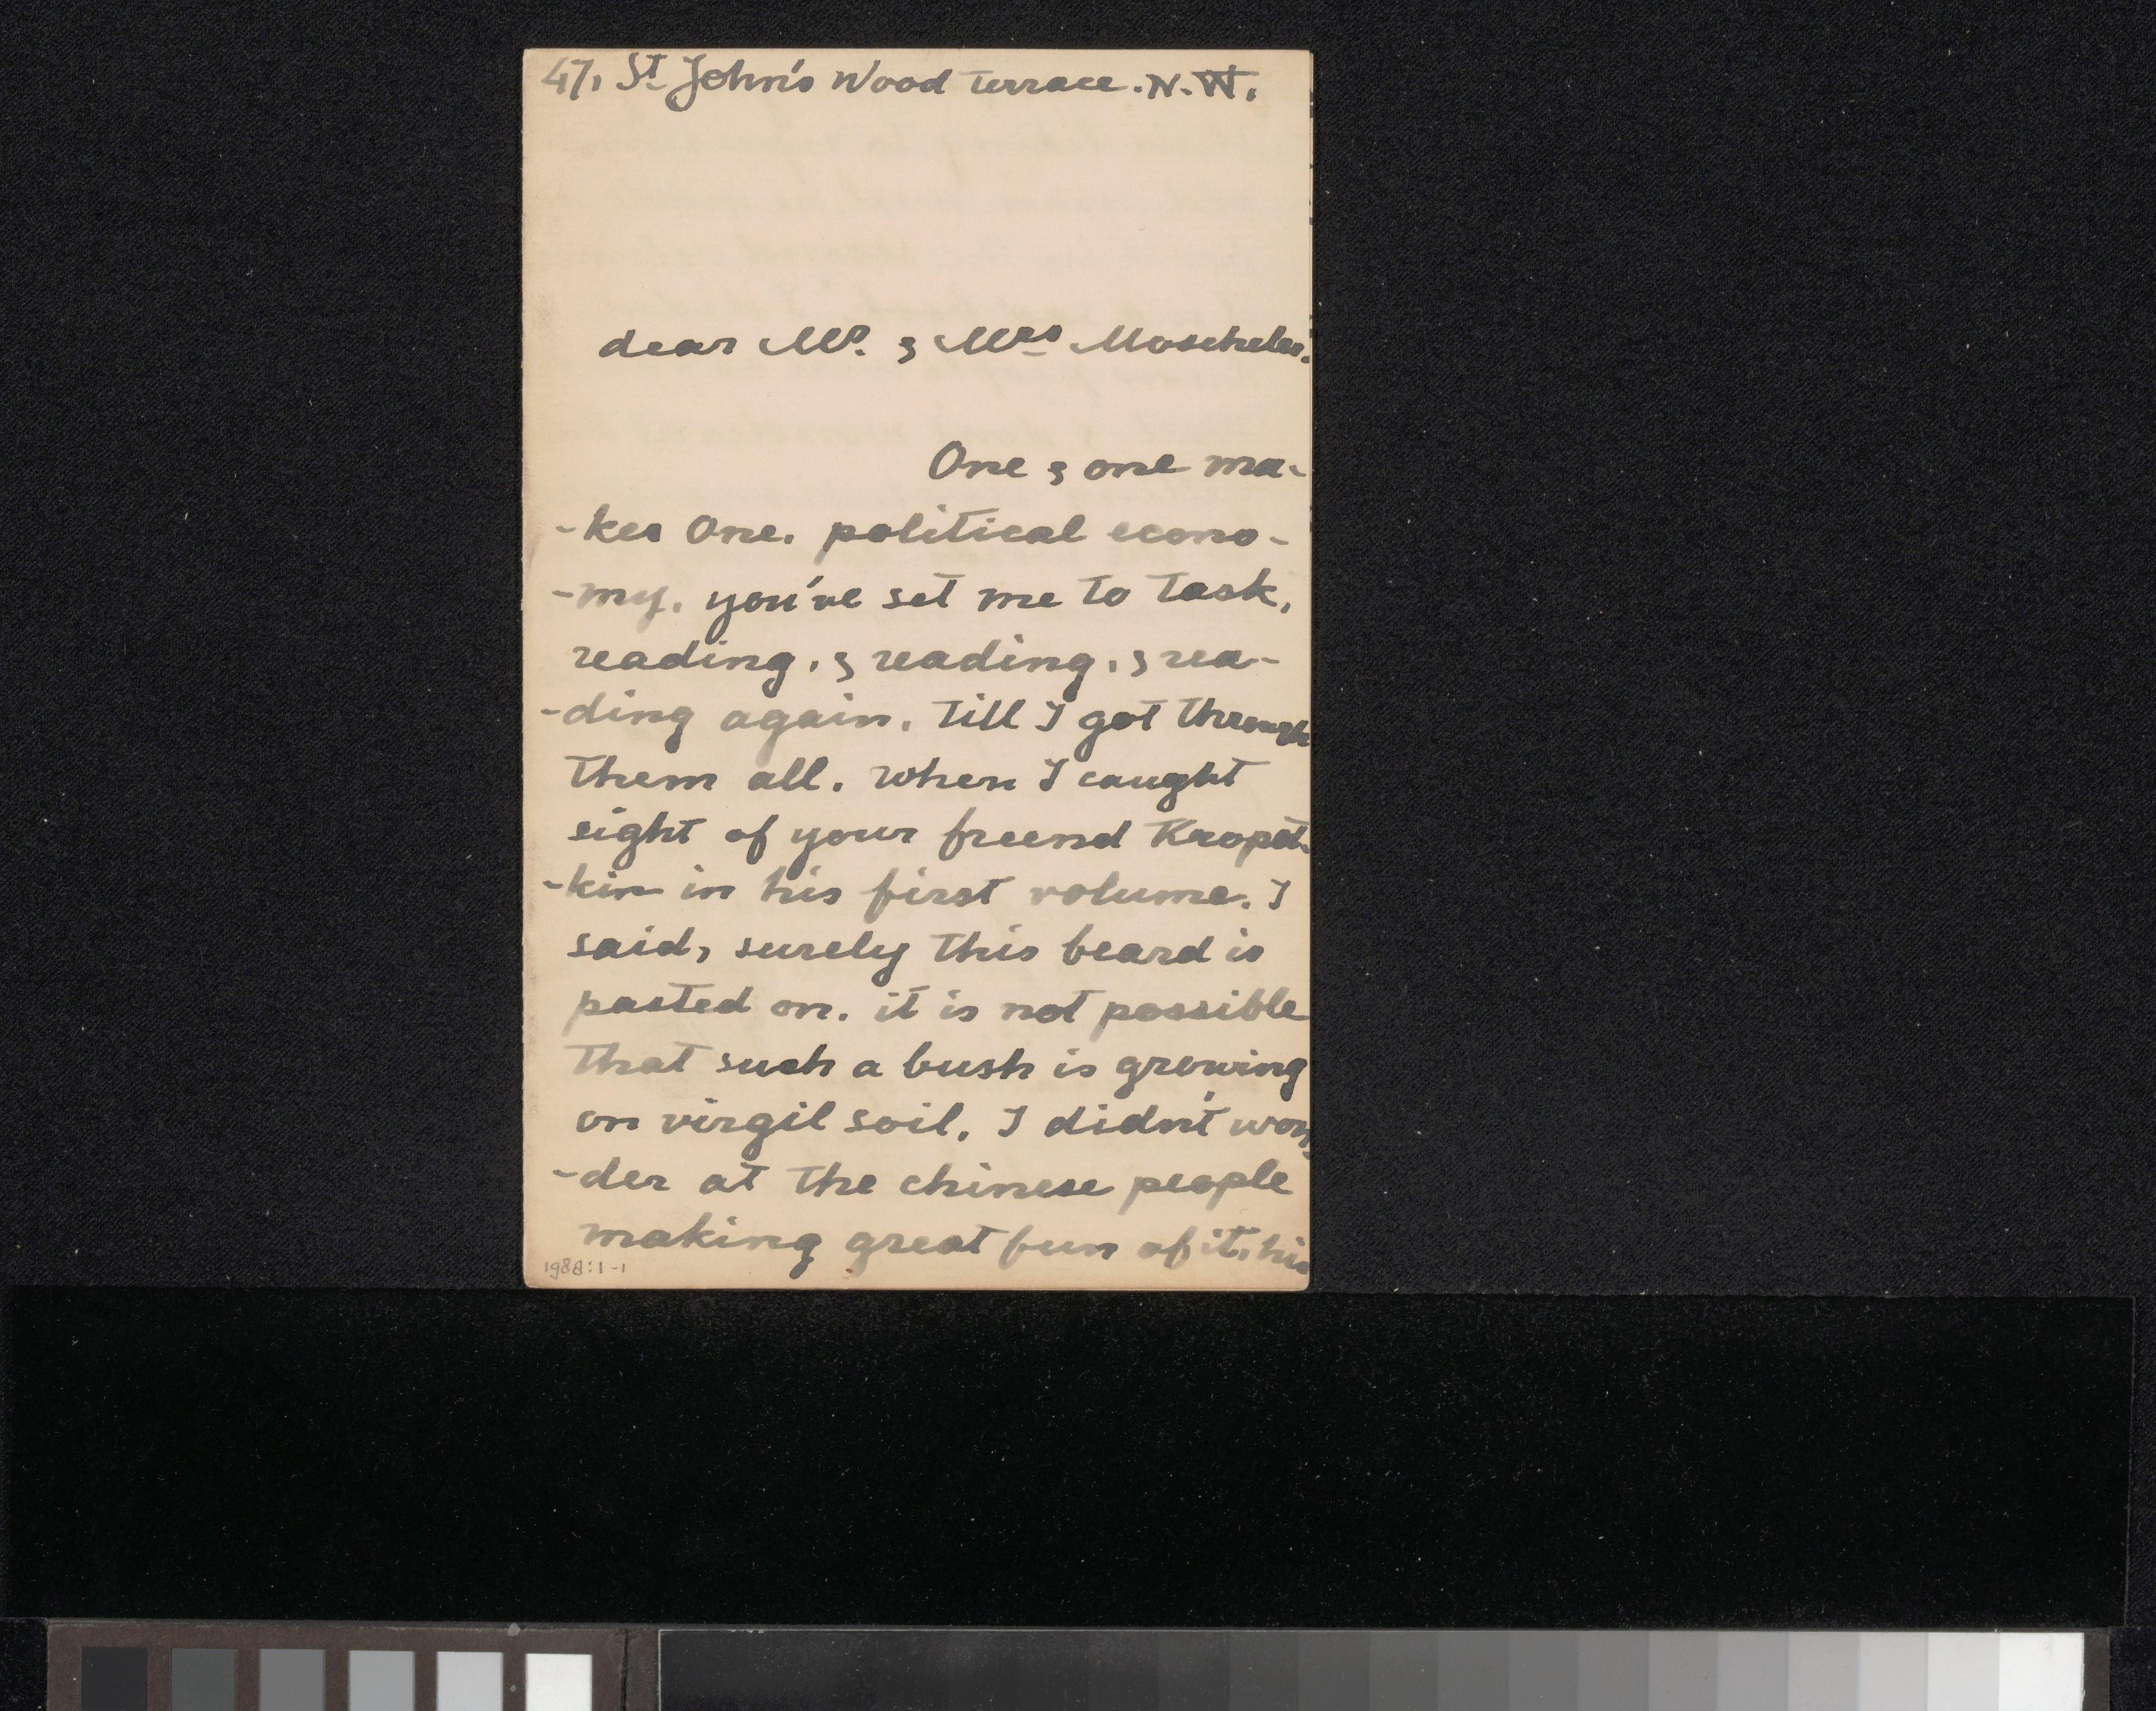 47, St John's Wood terrace. N.W.
dear Mr. & Mrs Moscheles.
One & one ma-
-kes One. political econo-
-my. you've set me to task,
reading, & reading, & rea-
-ding again. till I got through
them all. when I caught
sight of your freend Kropot-
-kin in his first volume. I
said, surely this beard is
pasted on. it is not possible
that such a bush is growing
on virgil soil. I didn't won-
-der at the chinese people
making great fun of it. his
1988:1-1